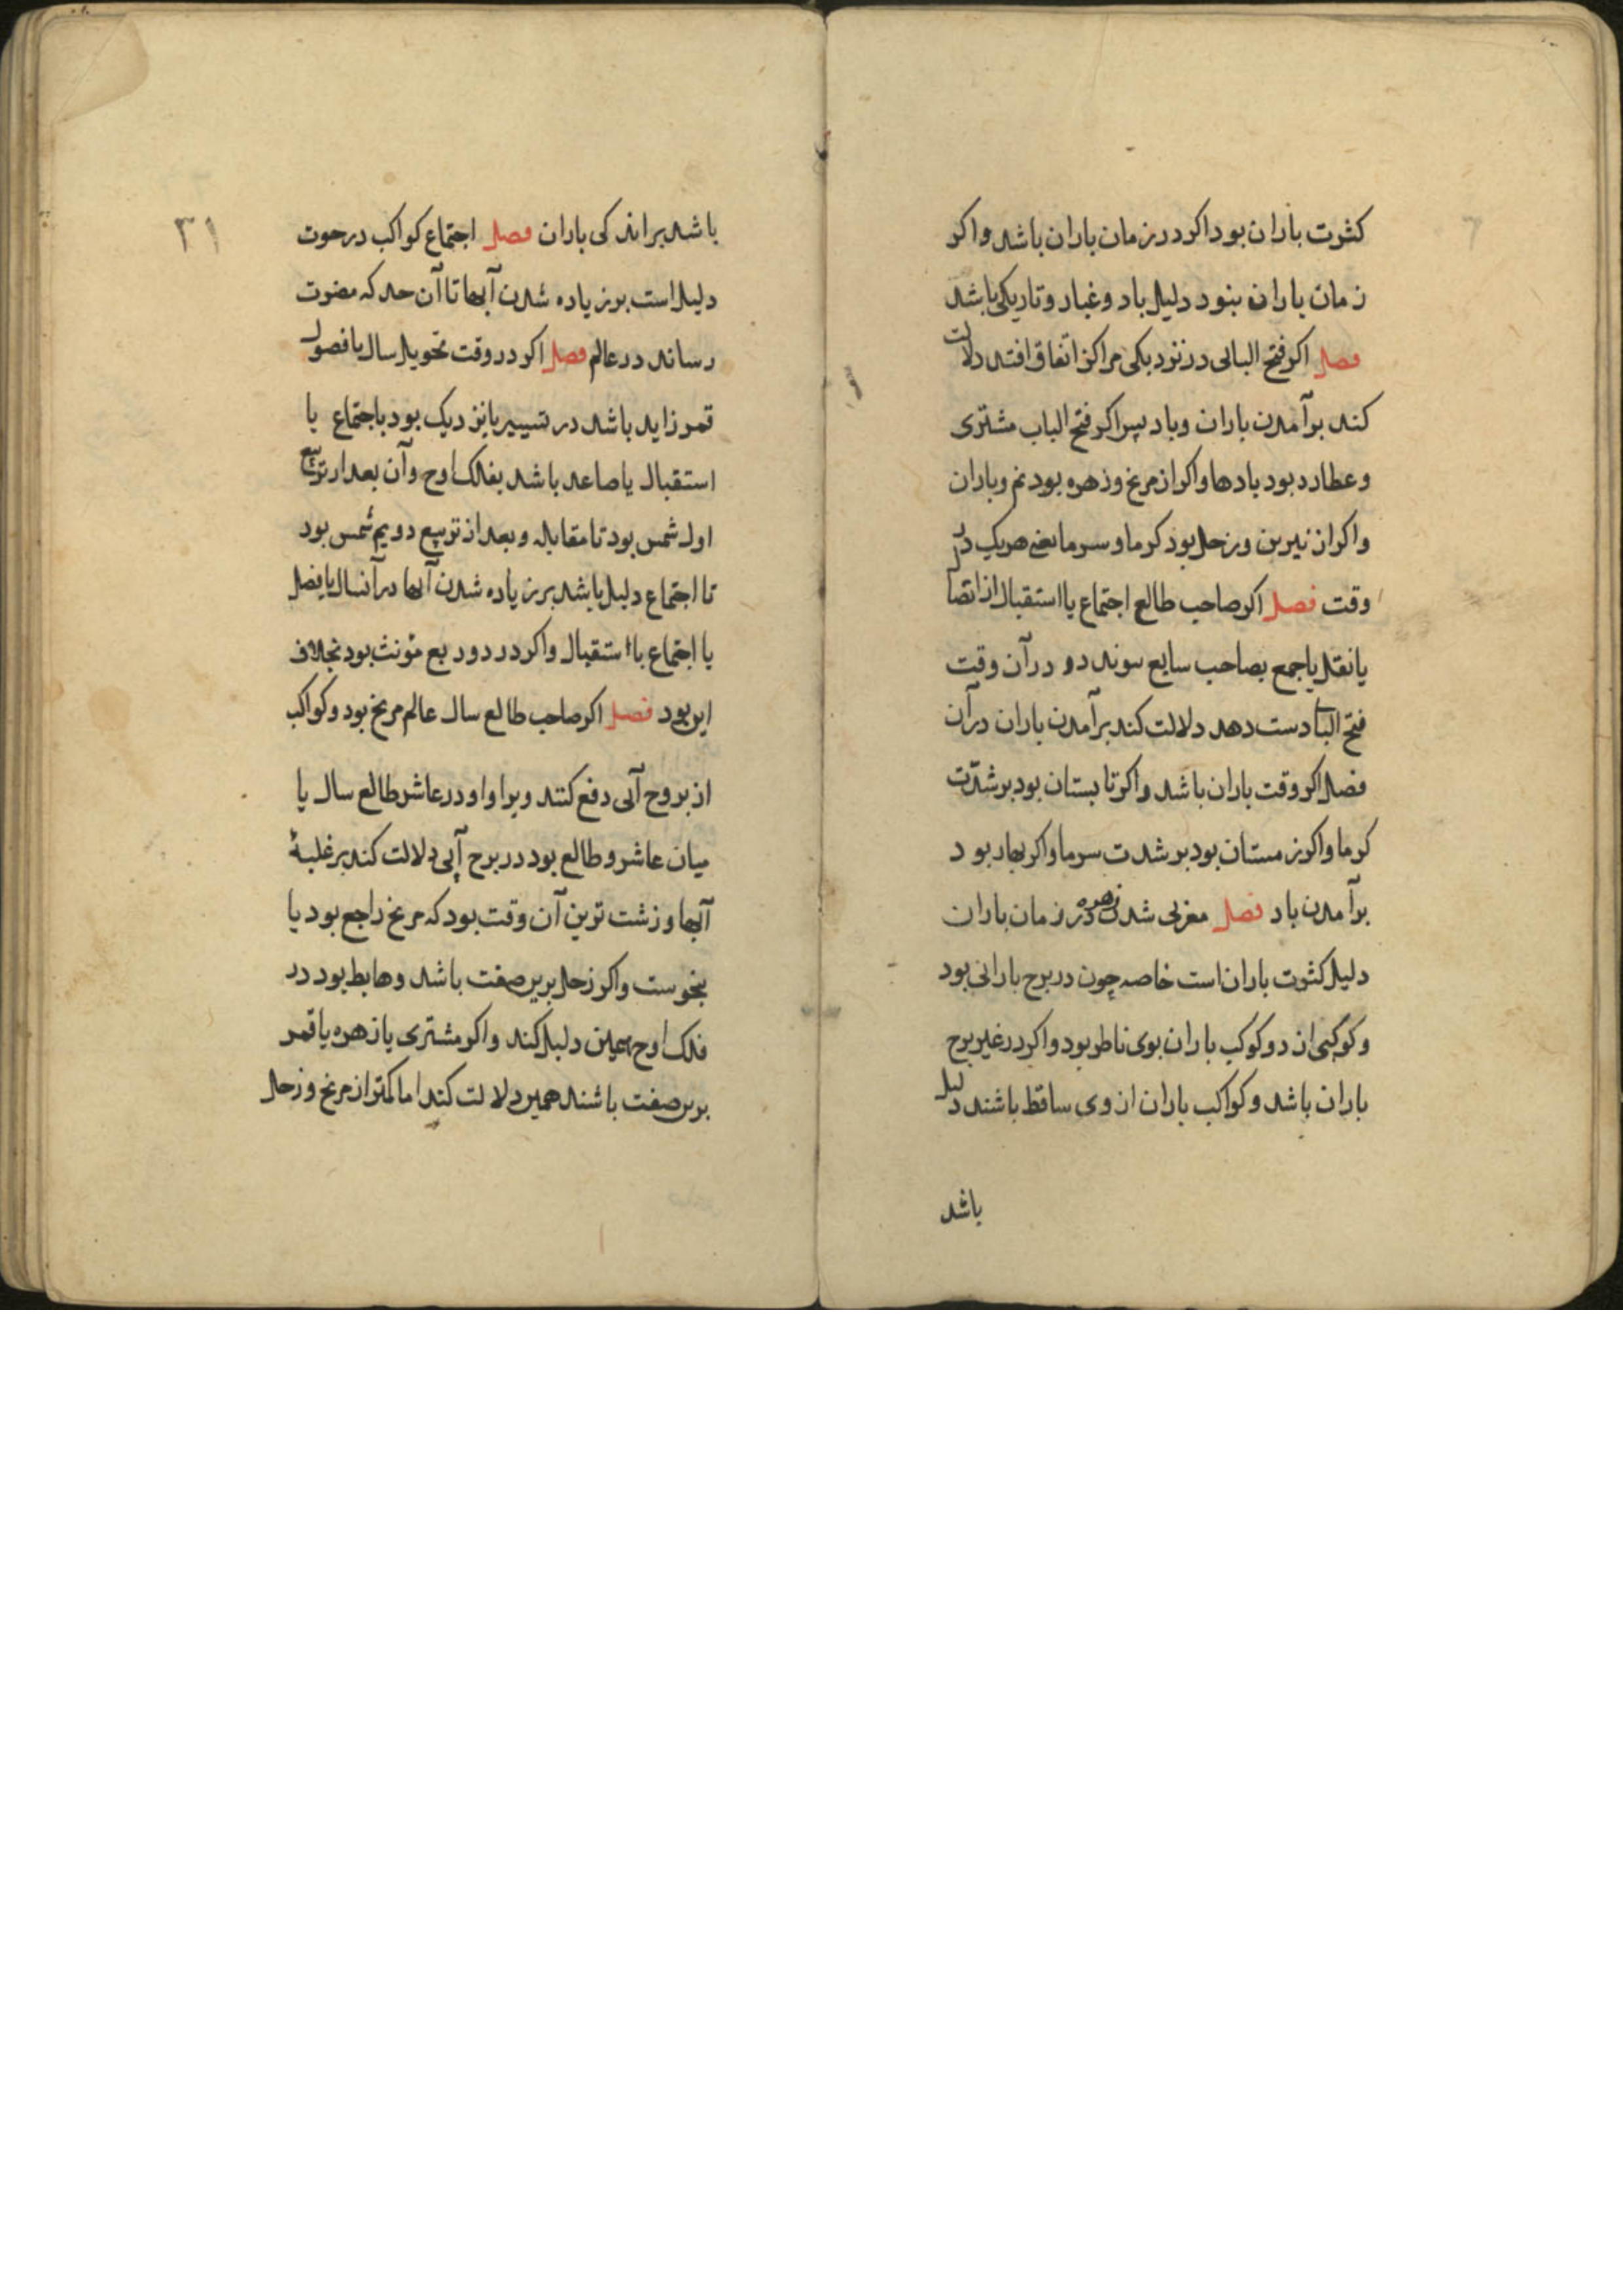 کثرت باران بود اکر در زمان باران باشد و اکر
زمان باران بنود دلیل باد و غبار و تاریکی باشد
فصل اکر فتح البابی در نزدیکی مراکز اتفاق افتد دلالت
کند بر آمدن باران و باد پس اکر فتح الباب مشتری
و عطارد بود بادها و اکر از مریخ و زهره بود نم و باران
و اکر از نیرین و زحل بود کرما و سرما یعنی هریک در
وقت فصل اکر صاحب طالع اجتماع یا استقبال از اتصال
یا نقل یا جمع بصاحب سابع در آن وقت
فتح الباب دست دهد دلالت کند بر آمدن باران در آن
فصل اکر وقت باران باشد و اکر تابستان بود بر شدّت
کرما و اکر زمستان بود بر شدت سرما و اکر بهار بود
بر آمدن باد فصل مغربی شدن زهره در زمان باران
دلیل کثرت باران است خاصه چون در برج بارانی بود
و کوکبی از دو کوکب باران بوی ناظر بود و اکر در غیر برج
باران باشد و کواکب باران از وی ساقط باشند دلیل
باشد
۳۱
باشد بر اندکی باران فصل اجتماع کواکب در حوت
دلیل است بر زیاده شدن آبها تا آن حد که مضرت
رساند در عالم فصل اکر در وقت تحویل سال یا فصول
قمر زاید باشد در تسییر یا نزدیک بود باجتماع یا
استقبال یا صاعد باشد بفلک اوج و آن بعد از تربیع
اول شمس بود تا مقابله و بعد از تربیع دویم شمس بود
تا اجتماع دلیل باشد بر زیاده شدن آبها در آنسال یا فصل
یا اجتماع یا استقبال و اکر در دو ربع مؤنث بود بخلاف
این بود فصل اکر صاحب طالع سال عالم مریخ بود و کواکب
از بروج آبی دفع کنند و برا و او در عاشر طالع سال یا
میان عاشر و طالع بود در برج آبی دلالت کند بر غلبهٔ
آبها و زشت ترین آن وقت بود که مریخ راجع بود یا
بنحوست و اکر زحل برین صفت باشد و هابط بود در
فلک اوج همین دلیل کند و اکر مشتری یا زهره یا قمر
برین صفت باشند همین دلالت کند اما کمتر از مریخ و زحل